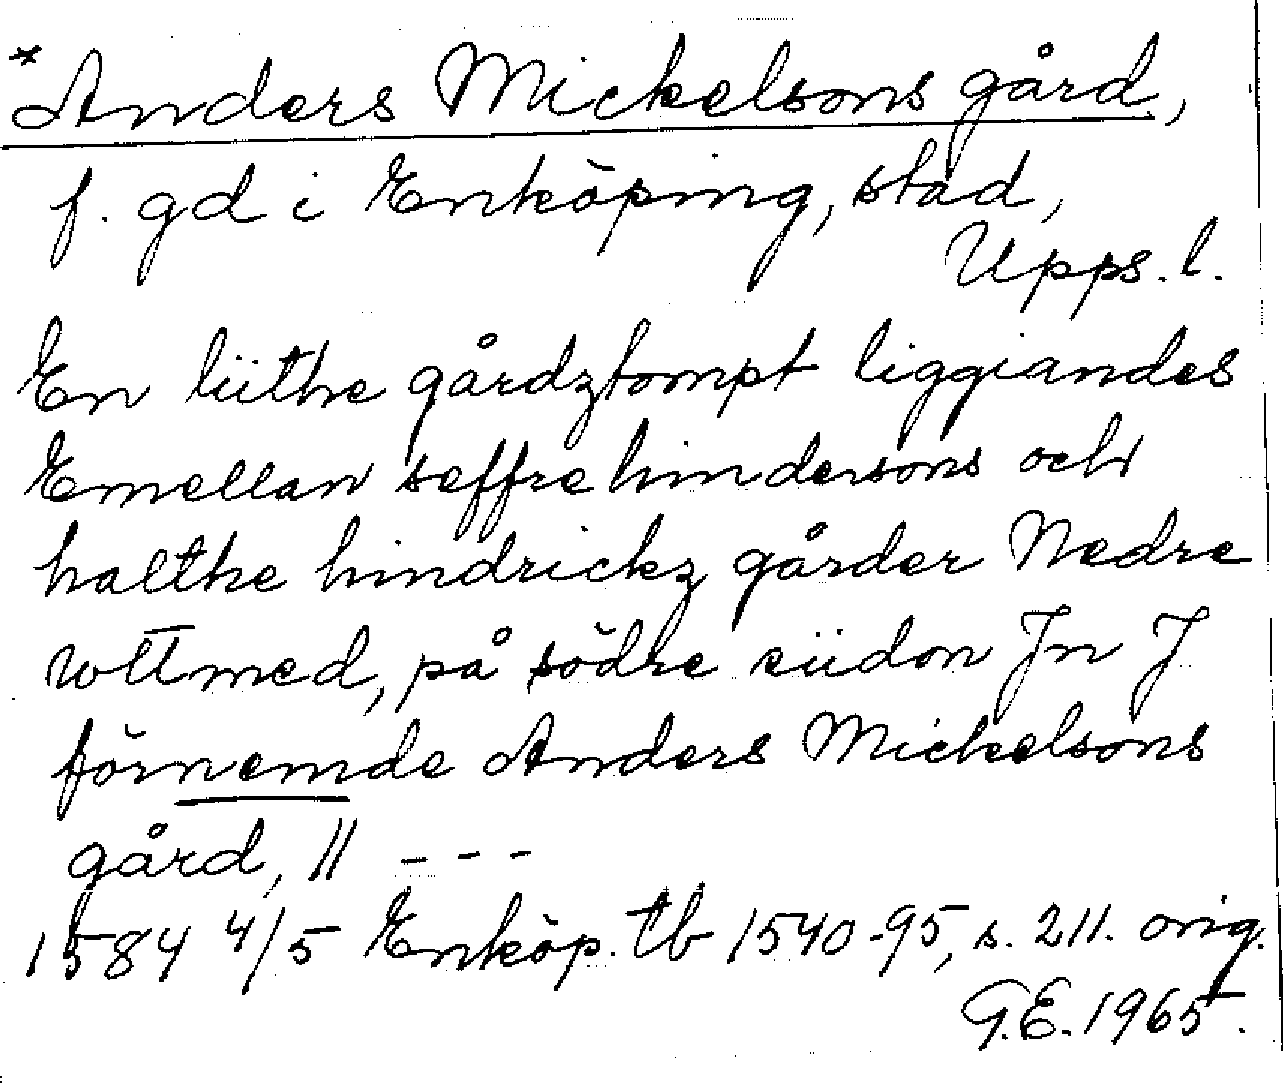 *Anders Mickelsons gård,
f. gd i Enköping, stad,
Upps. l.
En liithe gårdztompt liggiandes
Emellan seffre hindersons och
halthe hindrickz gårder Nedre
wttmed, på södre siidon Jn J
förnemde Anders Mickelsons
gård, // ---
1584 4/5 Enköp. tb 1540-95, s. 211. orig.
G.E. 1965.